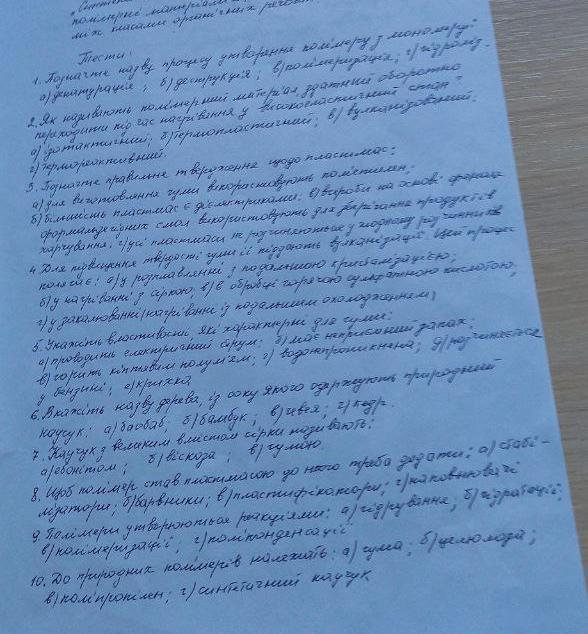 "Синтети
полімерні матеріали
між класами органічних речовин
Тести.
1. Позначте назву процесу утворення полімеру з мономеру:
а) денатурація; б) деструкція; в) полімеризація; г) гідроліз.
2. Як називають полімерний матеріал, здатний оборотно
переходити під час нагрівання у високопластичний стан?
а) ізотактичний; б) термопластичний; в) вулканізований;
г) термореактивний.
3. Позначте правильне твердження щодо пластмас:
а) для виготовлення гуми використовують поліетилен;
б) більшість пластмас є діелектриками; в) вироби на основі фенол-
формальдегідних смол використовують для зберігання продуктів
харчування; г) усі пластмаси не розчиняються у жодному розчиннику
4. Для підвищення твердості гуми її піддають вулканізації. Цей процес
полягає: а) у розплавленні з подальшою кристалізацією;
б) у нагріванні з сіркою; в) в обробці гарячою сульфатною кислотою;
г) у закалюванні/нагріванні із подальшим охолодженням;
5. Укажіть властивості, які характерні для гуми:
а) проводить електричний струм; б) має неприємний запах;
в) горить кіптявим полум'ям; г) водонепроникнена; д) розчиняється
у бензині; е) крихка.
6. Вкажіть назву дерева, із соку якого одержують природний
каучук: а) баобаб; б) бамбук; в) гевея; г) кедр.
7. Каучук з великим вмістом сірки називають:
а) ебонітом; б) віскоза; в) гумою.
8. Щоб полімер став пластмасою до нього треба додати; а) стабі-
лізатори; б) барвники; в) пластифікатори; г) наповнювачі
9. Полімери утворюються реакціями: а) гідрування; б) гідратації;
в) полімеризації; г) поліконденсації.
10. До природних полімерів належать: а) гума; б) целюлоза;
в) поліпропілен; г) синтетичний каучук